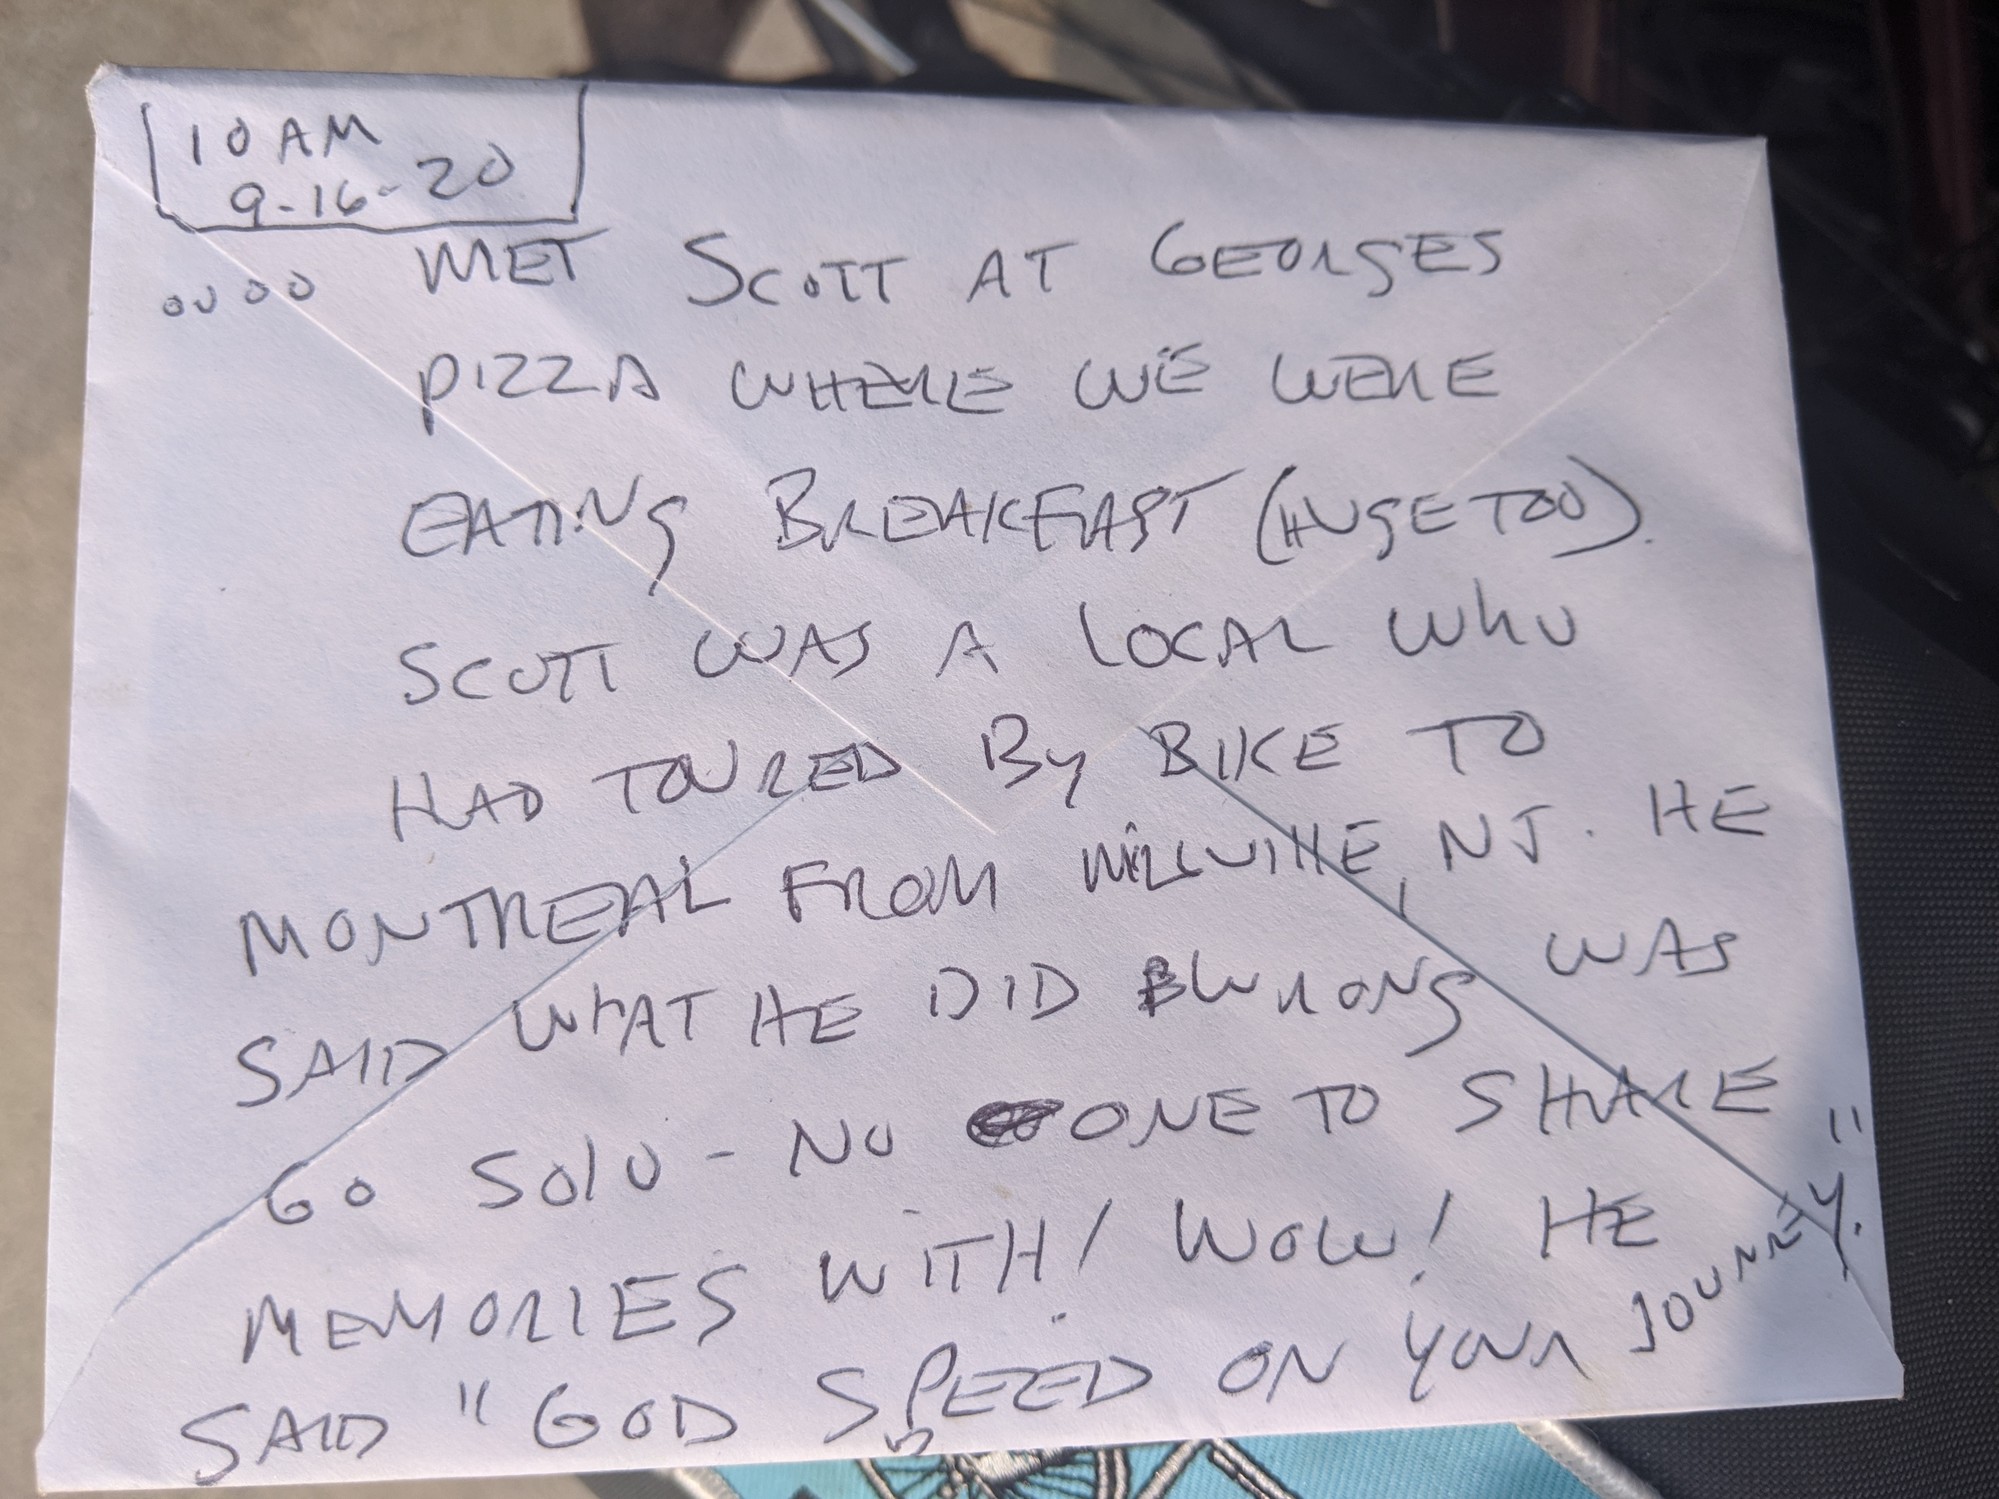 10 AM
9-16-20
oooo MET SCOTT AT GEORGES
PIZZA WHERE WE WERE
EATING BREAKFAST (HUGE TOO).
SCOTT WAS A LOCAL WHO
HAD TOURED BY BIKE TO
MONTREAL FROM MILLVILLE, NJ. HE
SAID WHAT HE DID WRONG WAS
GO SOLO - NO ONE TO SHARE
MEMORIES WITH! WOW! HE
SAID "GOD SPEED ON YOUR JOURNEY."